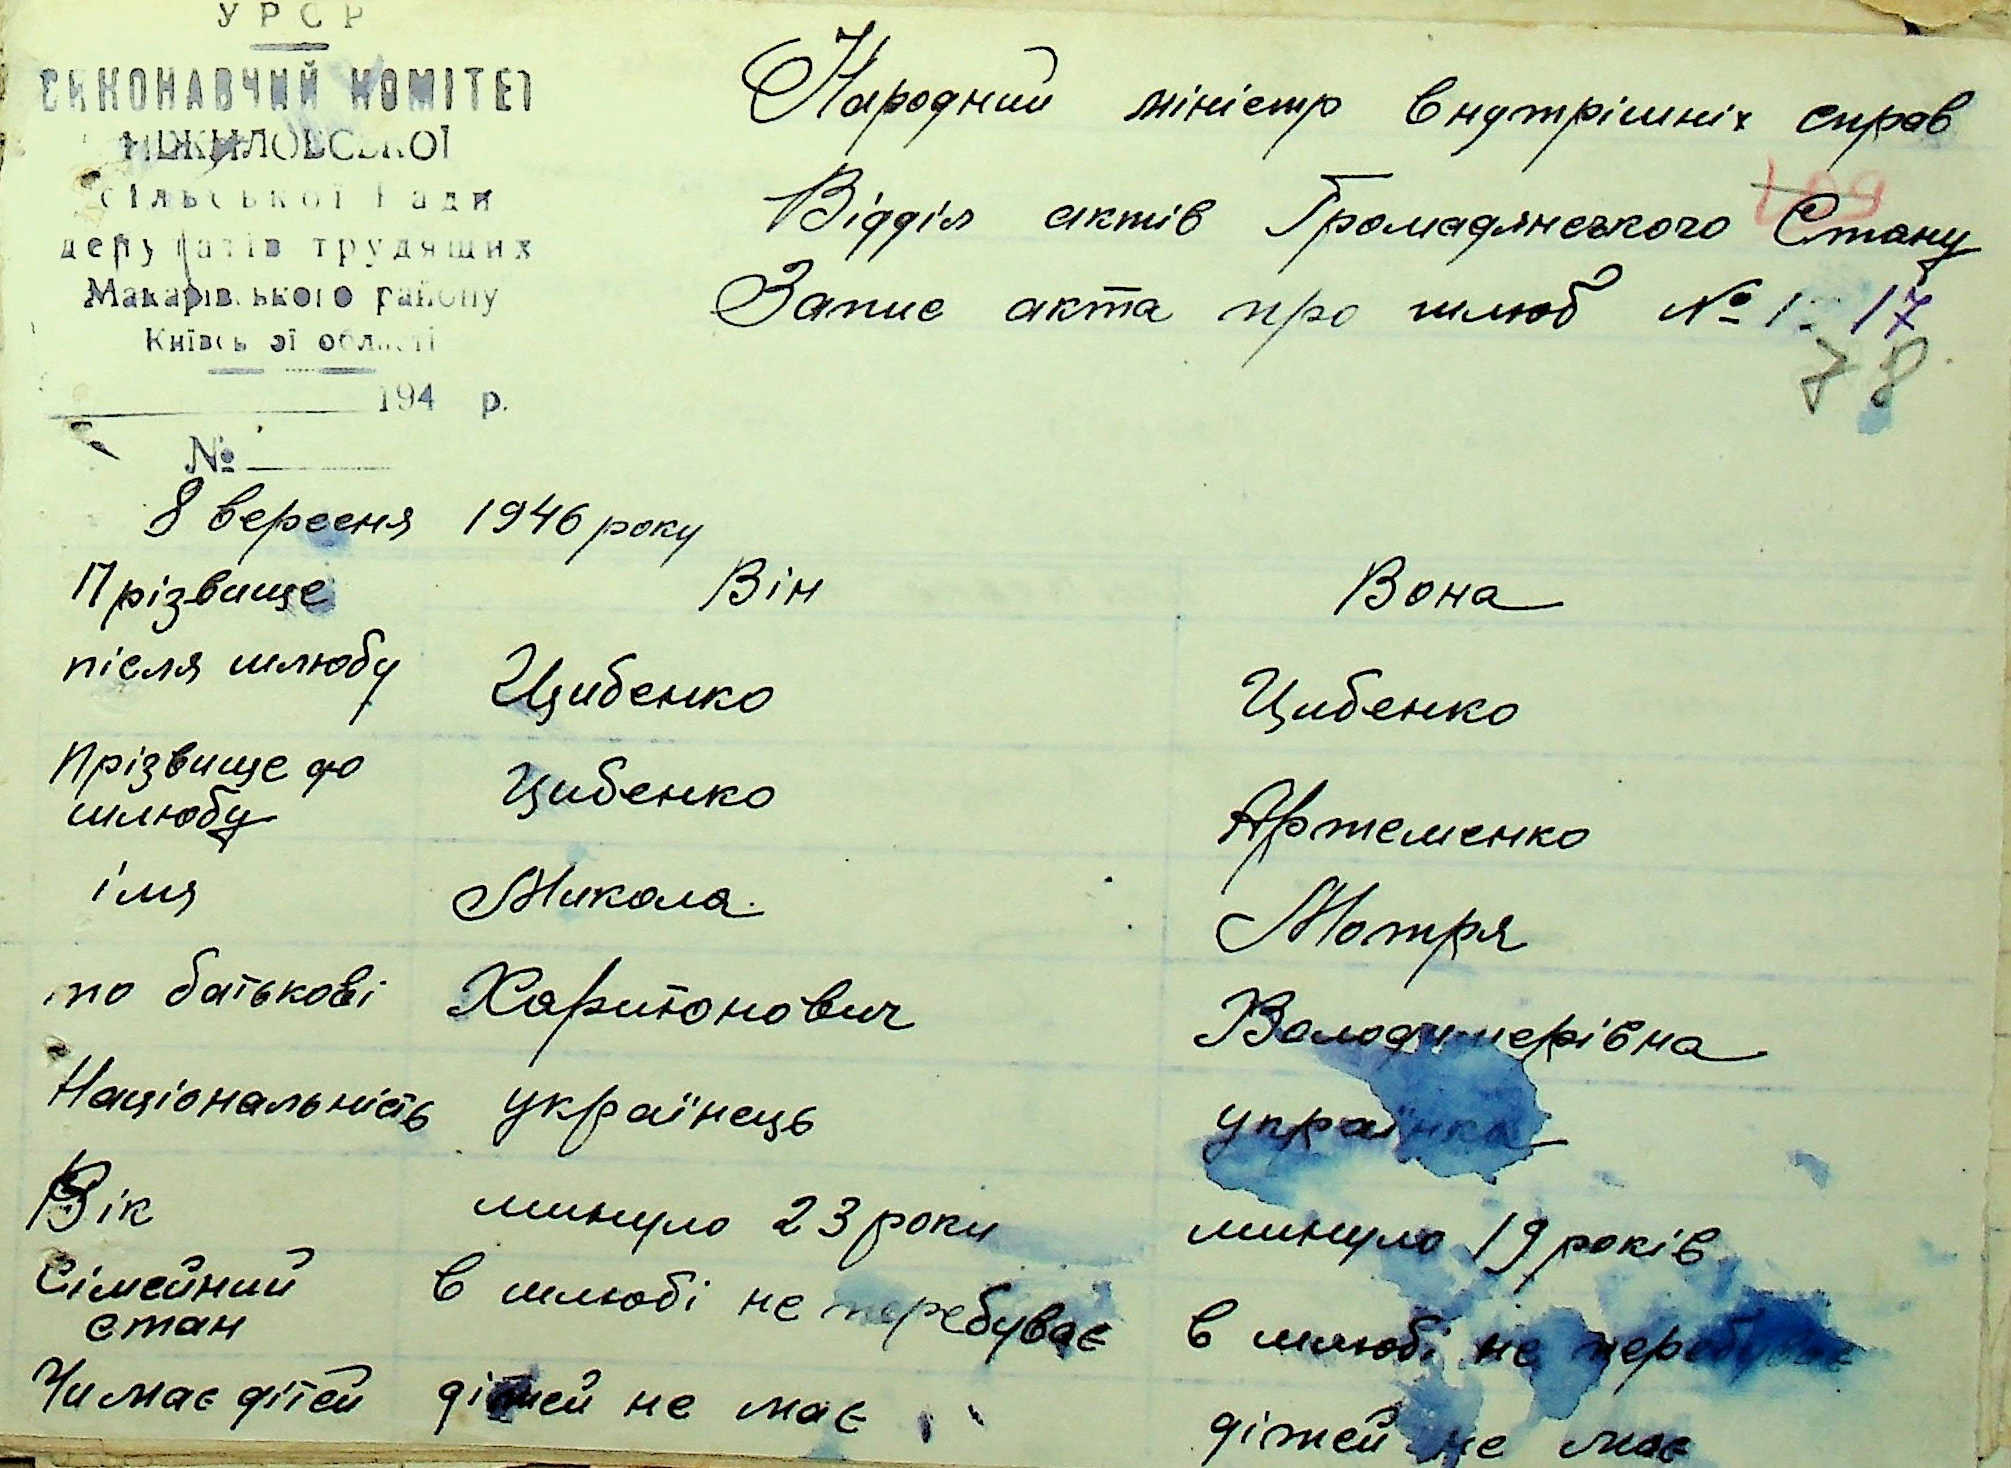 УРСР
ВИКОНАВЧИЙ КОМІТЕТ
НІЖИЛОВСЬКОЇ
сільської Ради
депутатів трудящих
Макарівського району
Київської області
194 р.
№
Народний міністр внутрішніх справ
Відділ актів Громадянського Стану
Запис акта про шлюб № 17
78
8 вересня 1946 року
Прізвище Він Вона
після шлюбу Цибенко Цибенко
Прізвище до Цибенко Артеменко
шлюбу
імя Микола Мотря
по батькові Харитонович Володимерівна
Національність українець українка
Вік минуло 23 роки минуло 19 років
Сімейний в шлюбі не перебуває в шлюбі не перебуває
стан
Чи має дітей дітей не має дітей не має